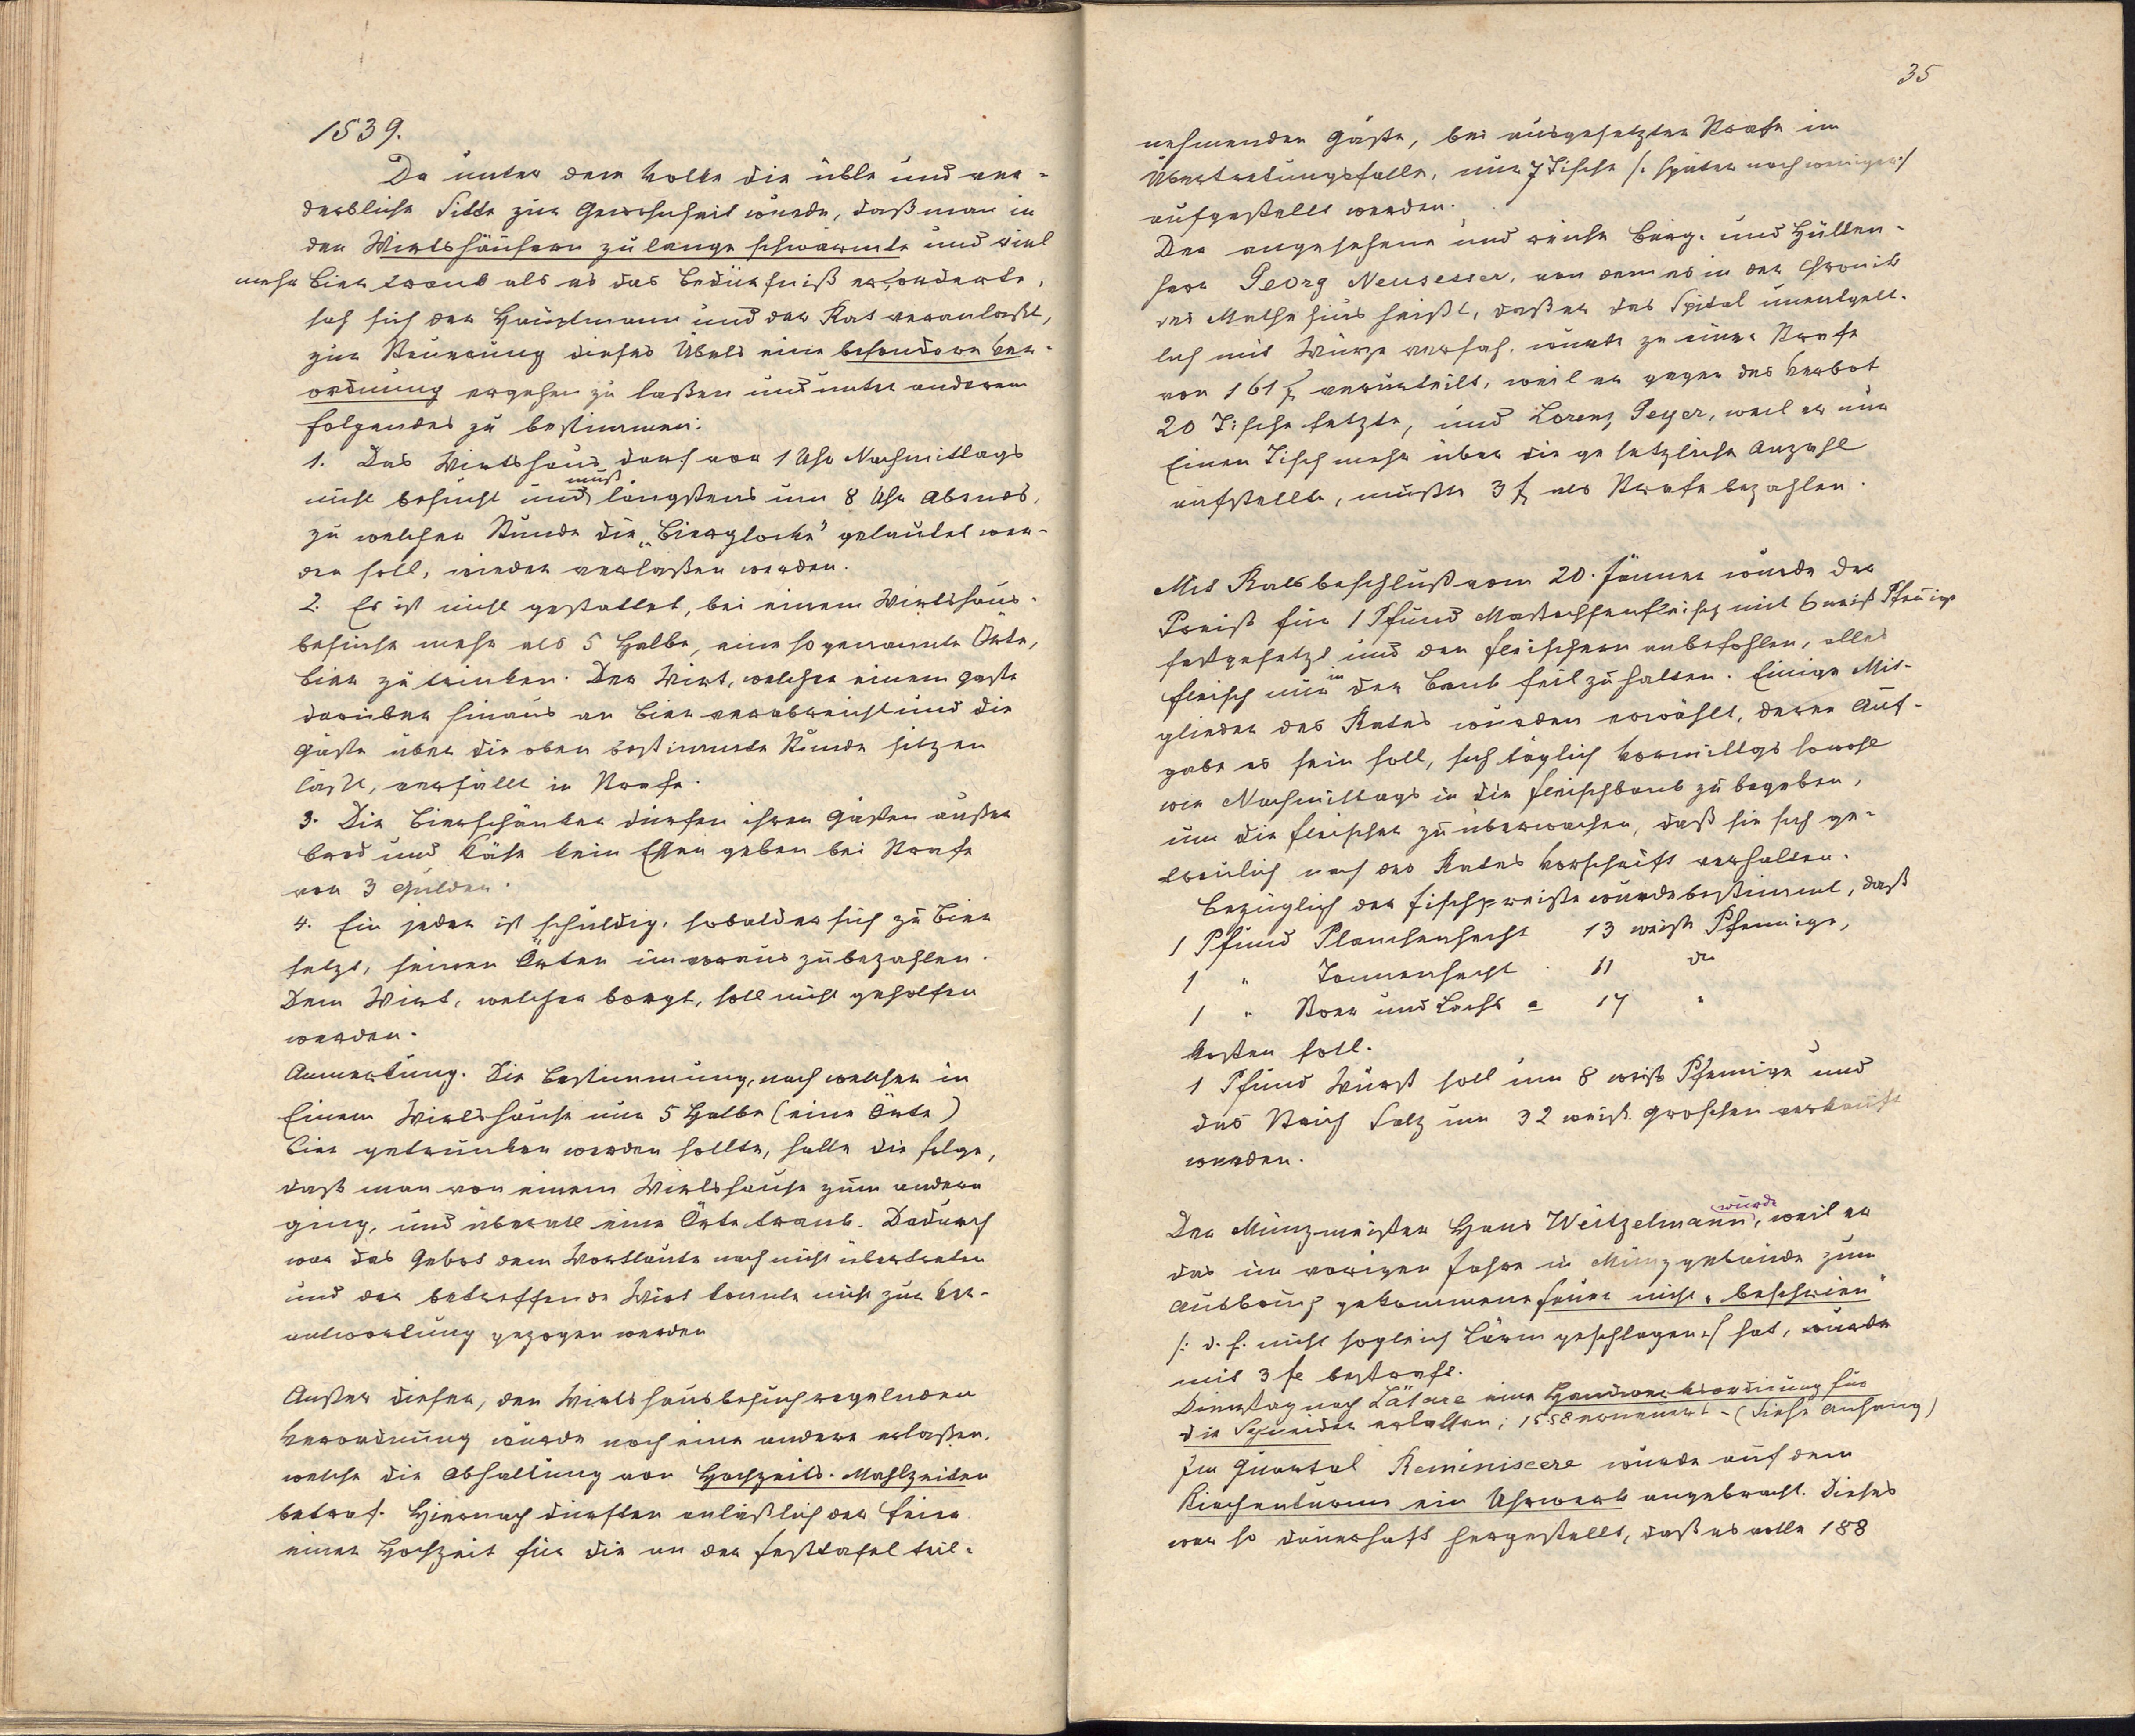 1539.
Da unter dem Volke die üble und ver-
derbliche Sitte zur Gewohnheit wurde, daß man in
den Wirtshäusern zu lange schwärmte und viel
mehr Bier trank als es das Bedürfniß erforderte,
sah sich der Hauptmann und der Rat veranlaßt,
zur Steuerung dieses Übels eine besondere Ver-
ordnung ergehen zu laßen und unter anderem
folgendes zu bestimmen:
1. Das Wirtshaus darf vor 1 Uhr Nachmittags
nicht besucht und muß längstens um 8 Uhr Abends,
zu welcher Stunde die „Bierglocke" gelautet wer-
den soll, wieder verlaßen werden.
2. Es ist nicht gestattet, bei einem Wirtshaus-
besuche mehr als 5 Halbe, eine so genannte Örte,
Bier zu trinken. Der Wirt, welcher einem Gaste
darüber hinaus an Bier verabreicht und die
Gäste über die oben bestimmte Stunde sitzen
läßt, verfällt in Strafe.
3. Die Bierschänker dürfen ihren Gästen außer
Brod und Käse kein Essen geben bei Strafe
von 3 Gulden.
4. Ein jeder ist schuldig, sobald er sich zu Bier
setzt, seinen Örten im voraus zu bezahlen.
Dem Wirt, welcher borgt, soll nicht geholfen
werden.
Anmerkung. Die Bestimmung, nach welcher in
Einem Wirtshause nur 5 Halbe (eine Örte)
Bier getrunken werden sollte, hatte die Folge,
daß man von einem Wirtshause zum andern
ging, und überall eine Örte trank. Dadurch
war das Gebot dem Wortlaute nach nicht übertreten
und der betreffende Wirt konnte nicht zur Ver-
antwortung gezogen werden
Außer dieser, den Wirtshausbesuch regelnden
Verordnung wurde noch eine andere erlaßen,
welche die Abhaltung von Hochzeits-Mahlzeiten
betraf. Hiernach durften anläßlich der Feier
einer Hochzeit für die an der Festtafel teil-
35
nehmenden Gäste, bei ausgesetzter Strafe im
Übertretungsfalle, nur 7 Tische /: später noch weniger :/
aufgestellt werden.
Der angesehene und reiche Berg- und Hütten-
herr Georg Neusesser, von dem es in der Chronik
des Mathesius heißt, daß er das Spital unentgelt-
lich mit Würze versah, wurde zu einer Strafe
von 161 f verurteilt, weil er gegen das Verbot
20 Tische setzte, und Lorenz Geyer, weil er nur
Einen Tisch mehr über die gesetzliche Anzahl
aufstellte, mußte 3 f als Strafe bezahlen.
Mit Ratsbeschluß vom 20. Jänner wurde der
Preiß für 1 Pfund Mastochsenfleisch mit 6 weiß Pfennige
festgesetzt und den Fleischern anbefohlen, alles
Fleisch nur in der Bank feil zu halten. Einige Mit-
glieder des Rates wurden erwählt, deren Auf-
gabe es sein soll, sich täglich Vormittags sowohl
wie Nachmittags in die Fleischbank zu begeben,
um die Fleischer zu überwachen, daß sie sich ge-
treulich nach des Rates Vorschrift verhalten.
Bezüglich der Fischpreiße wurde bestimmt, daß
1 Pfund Planchenhecht 13 weiße Pfennige,
1 " Tonnenhecht 11 do
1 " Stoer und Lachs a 17 "
kosten soll.
1 Pfund Wurst soll um 8 weiß Pfennige und
das Strich Salz um 32 weiß. Groschen verkauft
werden.
Der Münzmeister Hans Weitzelmann wurde, weil er
das im vorigen Jahre in Münzgebäude zum
Ausbruch gekommene Feuer nicht „beschrien"
/: d. h. nicht sogleich Lärm geschlagen :/ hat, wurde
mit 3 f bestraft.
Dienstag nach Lätare eine Handwerksordnung für
die Schneider erlassen; 1558 erneuert - (Siehe Anhang)
Im Quartal Reminiscere wurde auf dem
Kirchenturme ein Uhrwerk angebracht. Dieses
war so dauerhaft hergestellt, daß es volle 188